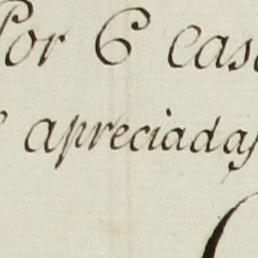 Por 6 cas
apreciadas